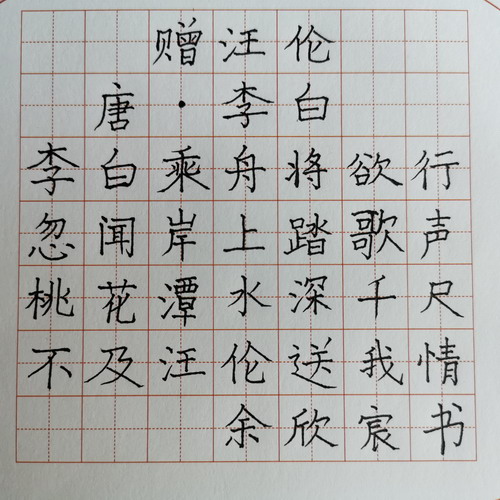 赠汪伦
唐·李白
李白乘舟将欲行
忽闻岸上踏歌声
桃花潭水深千尺
不及汪伦送我情
余欣宸书